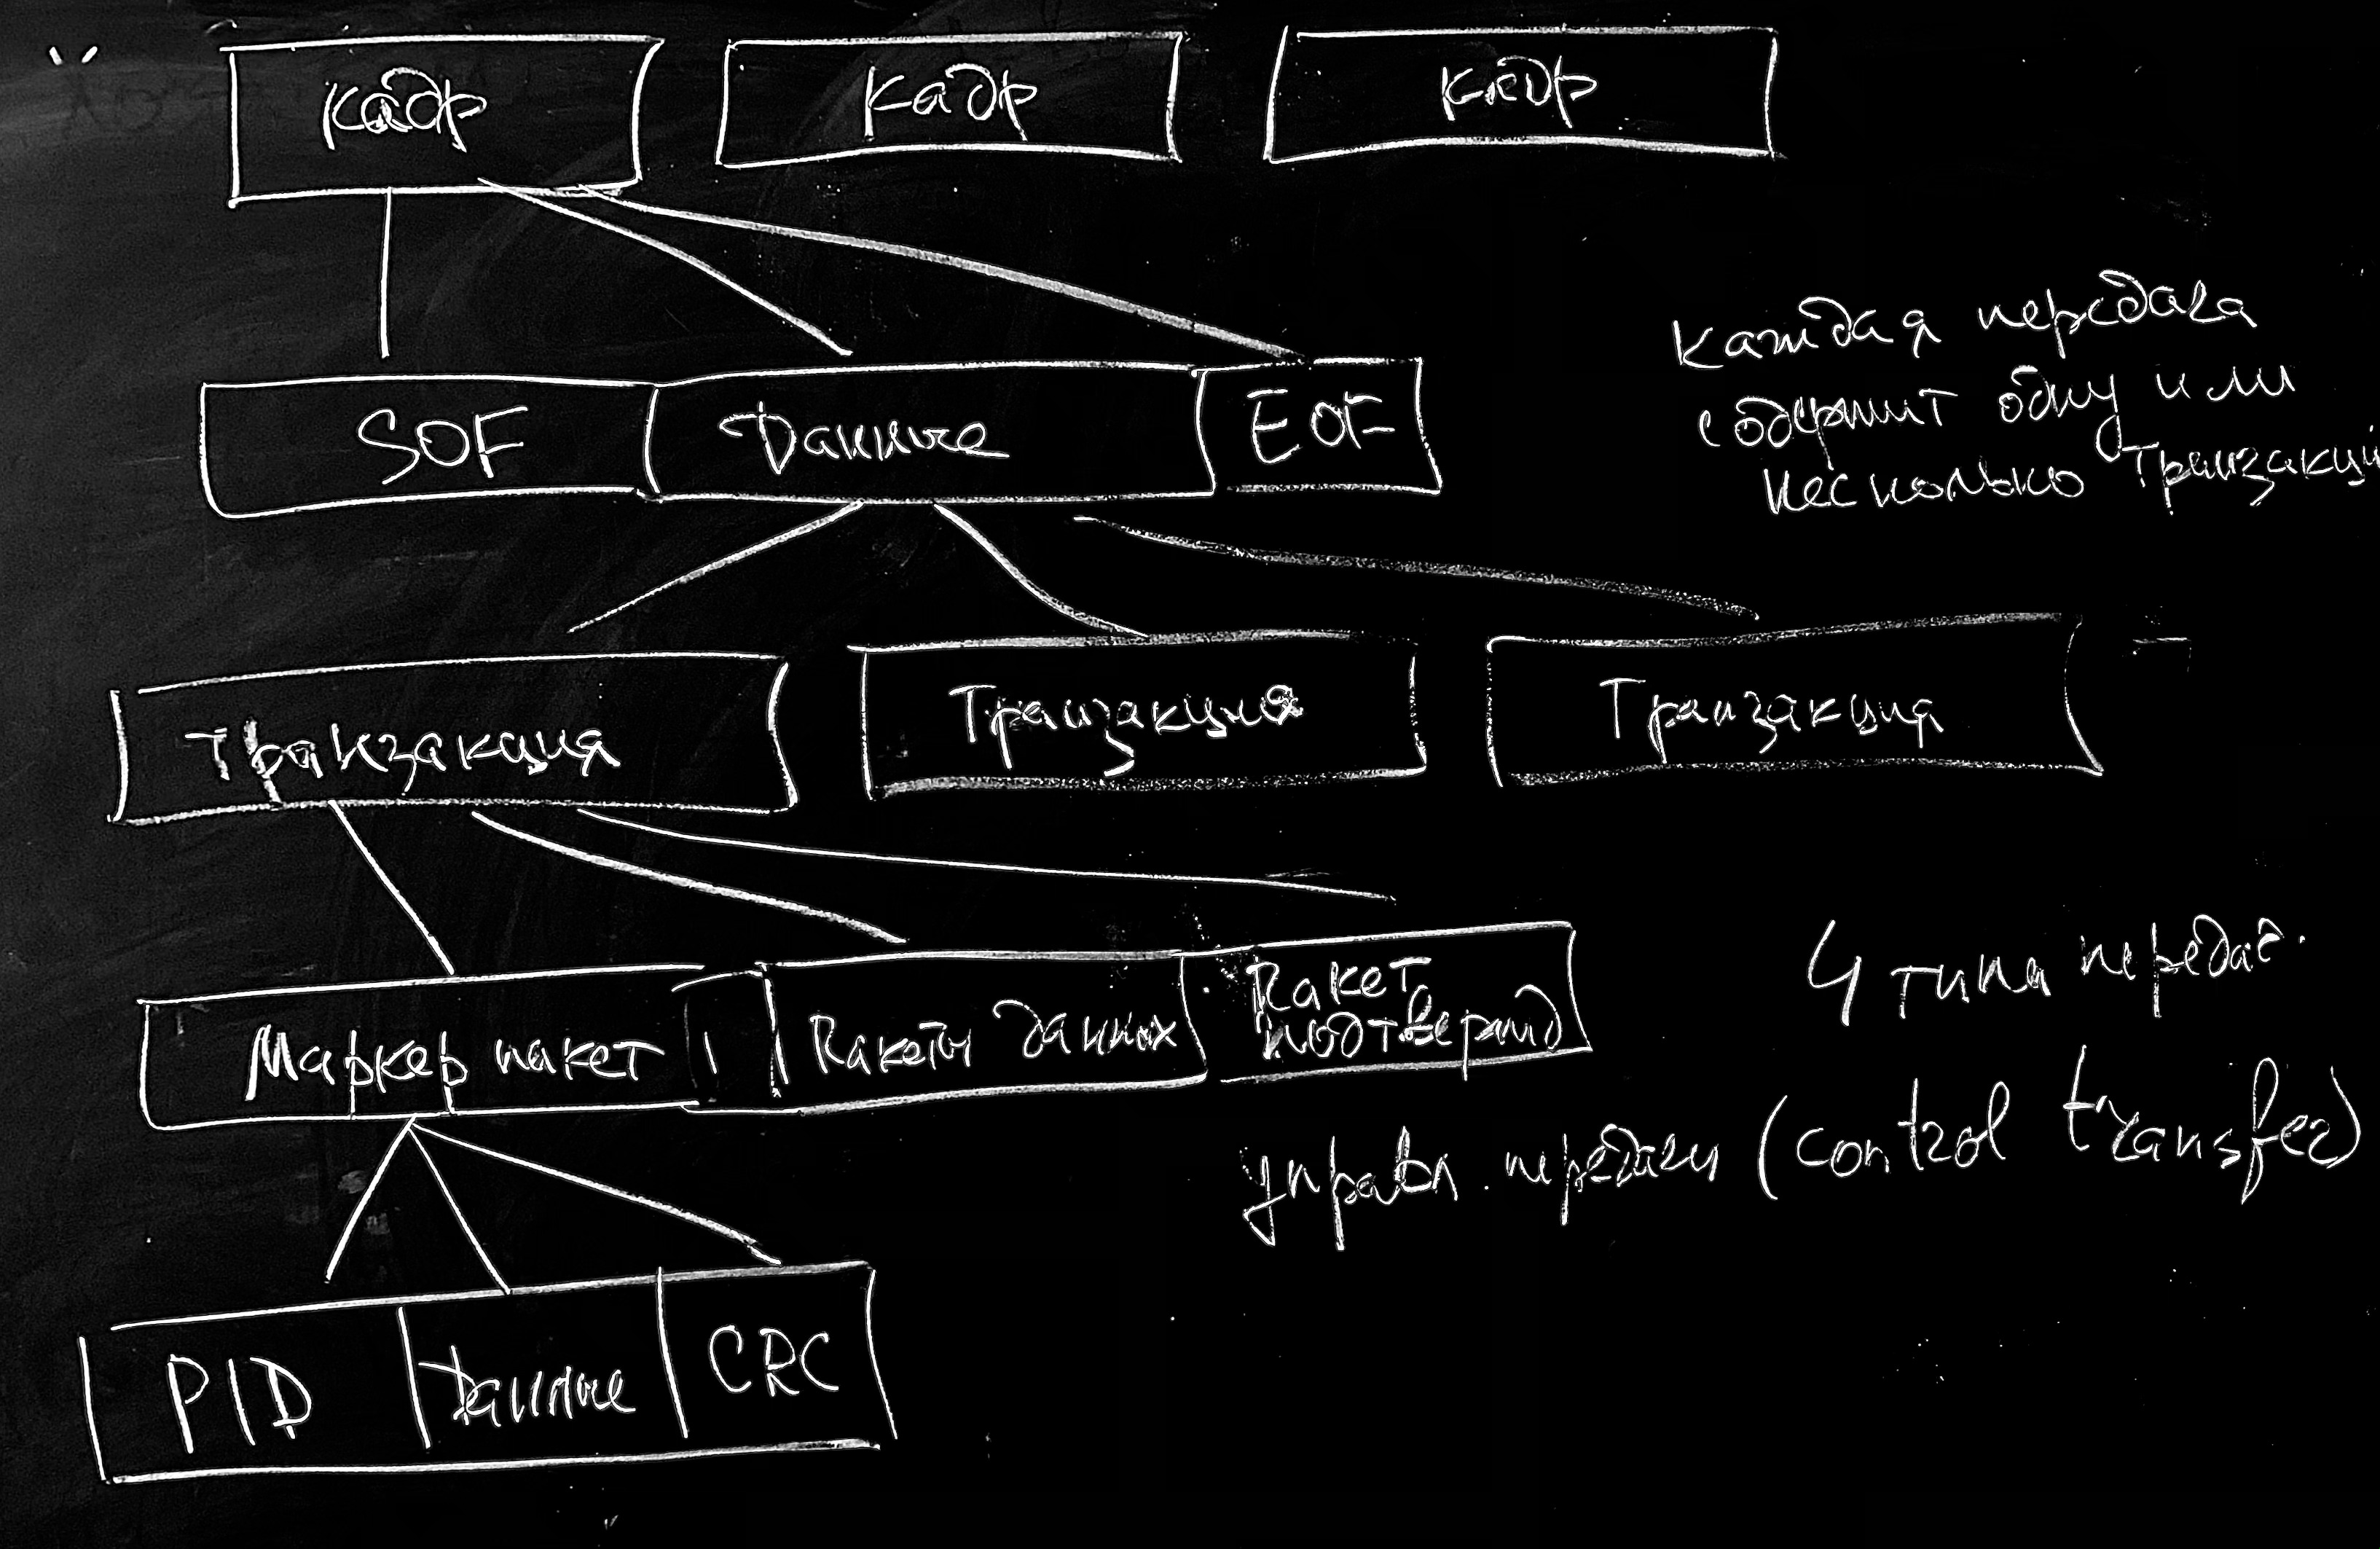 кадр
кадр
кадр
каждая передача
содержит одну или
несколько транзакций
SOF
Данные
EOF
Транзакция
Транзакция
Транзакция
Маркер пакет
Пакеты данных
Пакет
подтвержд
4 типа передач.
управл. передачи (control transfer)
PID
Данные
CRC